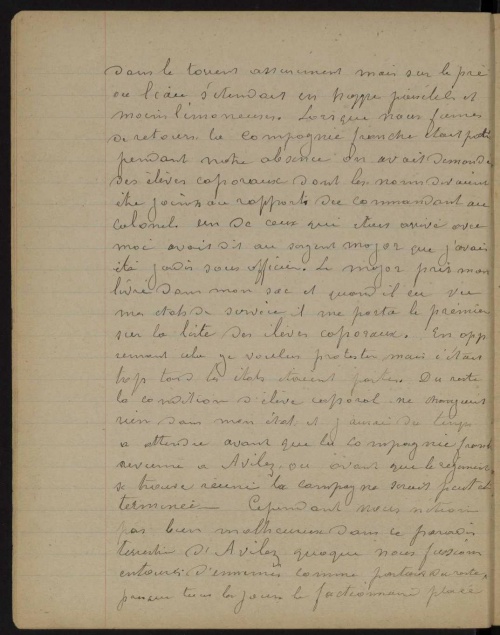 dans le torrent assurément mais sur le pré
où l'eau s'étendait en nappe paisible et
moins limoneuse. Lorsque nous fumes
de retours la compagnie franche était partie
pendant notre absence on avait demandé
des élèves caporaux dont les noms devaient
être joins au rapport du commandant au
colonel. un de ceux qui étais arrivé avec
moi avait dit au sergent major que j'avais
été jadis sous officier. Le major pris mon
livré dans mon sac et quand il eu vu
mes etats de service il me porta le prémier
sur la liste des élèves caporaux. En
cela je voulu protester mais c'étais
trop tard les états étaient partis. Du reste
la condition d'élève caporal ne changeait
rien dans mon état et j'aurai du temps
a attendre avant que la compagnie franche
revienne a Avilez ou avant que le régiment
se trouve réuni la campagne serait peut et
terminée — Cependant nous n'étions
pas bien malheureux dans ce paradis
terrestre d'Avilez quoique nous fussions
entourés d'ennemis comme partout du reste,
presque tous les jours le factionnaire placé